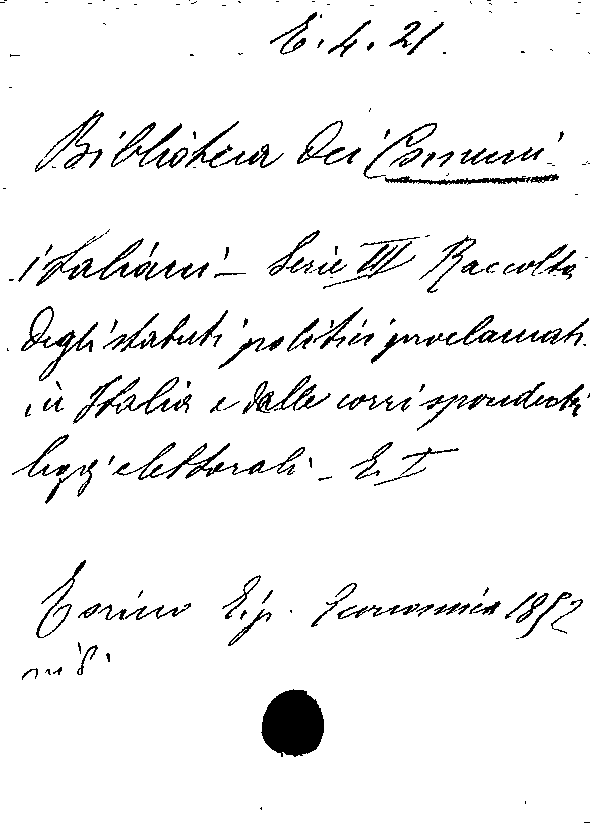 E. 4. 21.
Biblioteca dei Comuni
italiani - Serie III Raccolta
degli statuti politici proclamati
in Italia e dalle corrispondenti
leggi elettorali - E. I
Torino Tip. Economica 1852
in 8.